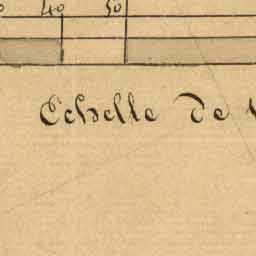 40 50
Echelle de